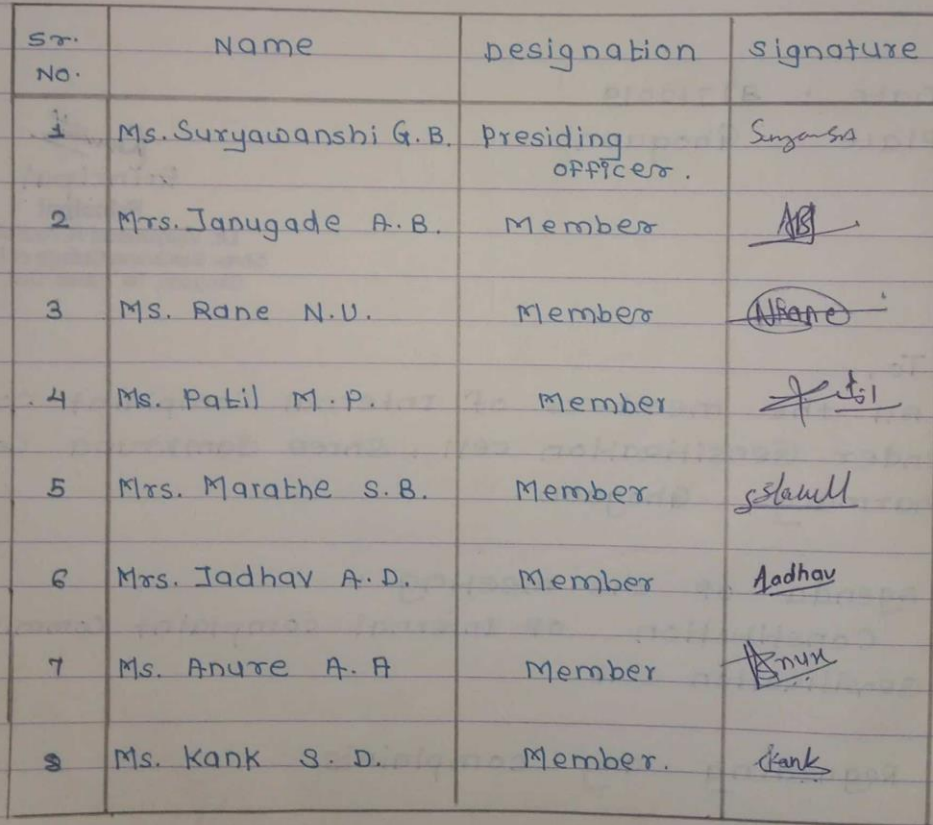 Sr. No. Name Designation Signature
1 Ms. Suryawanshi G.B. Presiding officer.
2 Mrs. Janugade A.B. Member AB
3 Ms. Rane N.U. Member NRane
4 Ms. Patil M P. Member
5 Mrs. Marathe S.B. Member
6 Mrs. Jadhav A.D. Member Aadhav
7 Ms. Anure A.A Member
8 Ms. Kank S.D. Member. Kank